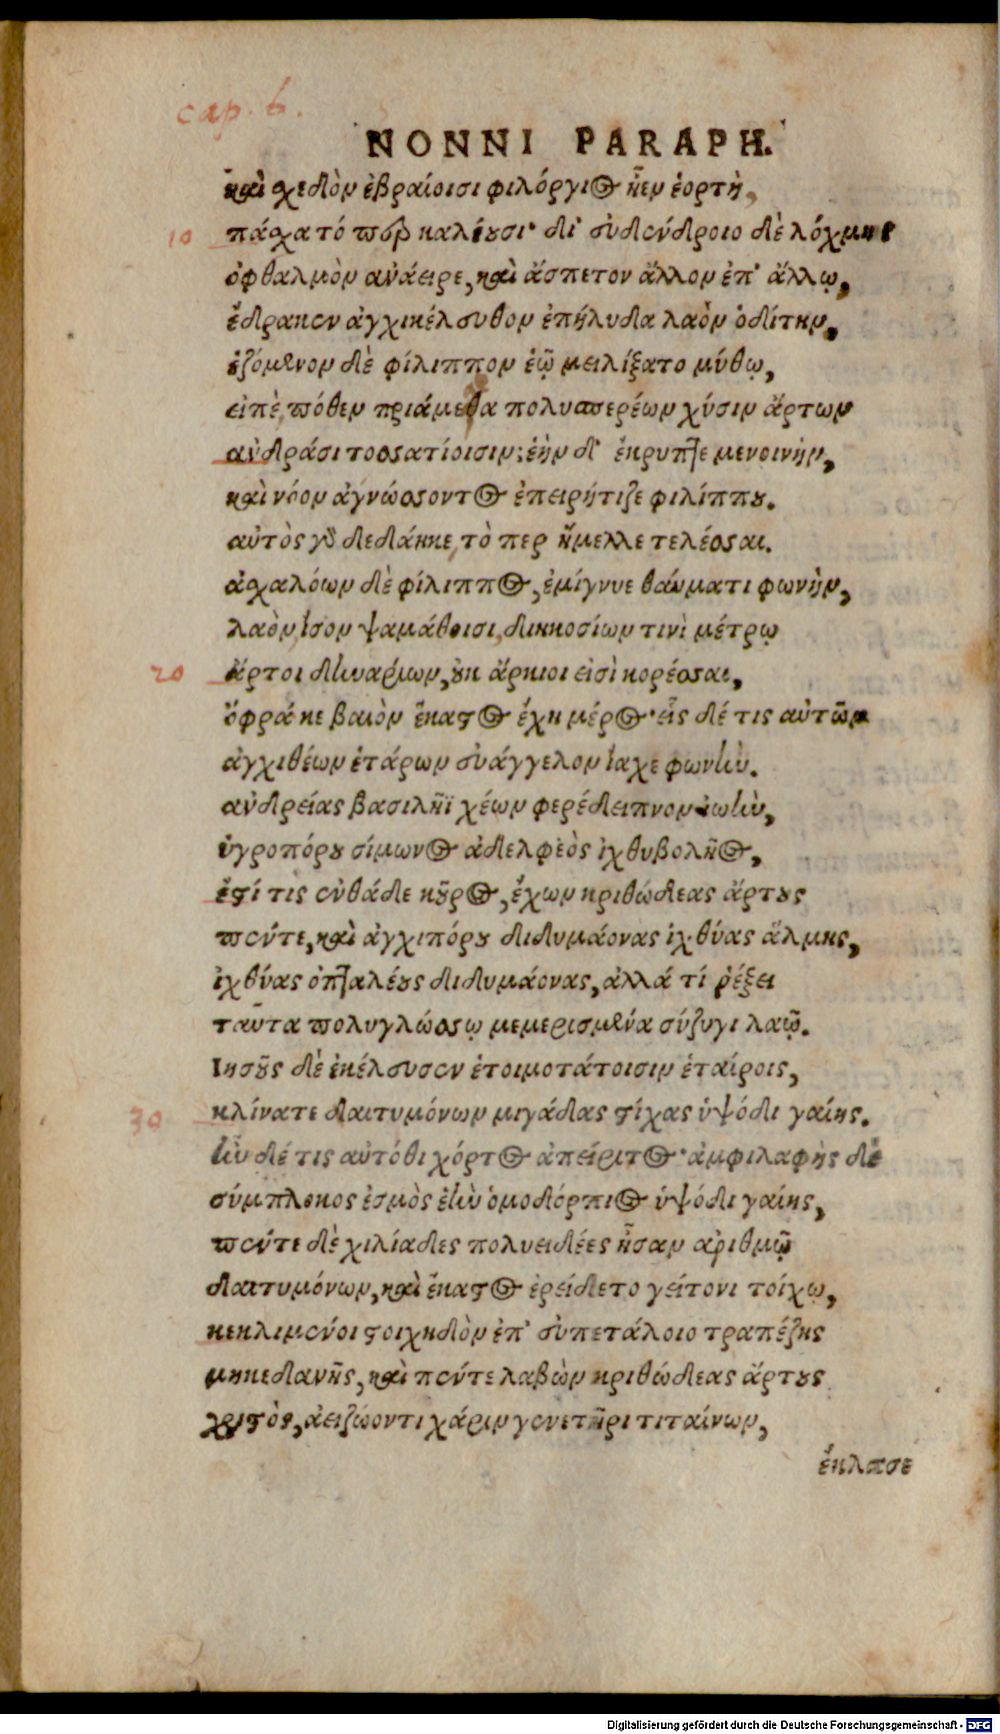 cap. 6.
NONNI PARAPH.
καὶ σχεδὸν ἑβραίοισι φιλόργιος ἦεν ἑορτὴ,
10 πάσχα τό περ καλέουσι· δι' εὐδένδροιο δὲ λόχμης
ὀφθαλμὸν ἀνάειρε, καὶ ἄσπετον ἄλλον ἐπ' ἄλλῳ,
ἔδρακεν ἀγχικέλευθον ἐπήλυδα λαὸν ὁδίτην,
ἑζόμενον δὲ φίλιππον ἑῷ μειλίξατο μύθῳ,
εἰπὲ πόθεν πριάμεθα πολυσπερέων χύσιν ἄρτων
ἀνδράσι τοσσατίοισιν; ἑὴν δ' ἔκρυπτε μενοινὴν,
καὶ νόον ἀγνώσσοντος ἐπειρήτιζε φιλίππου.
αὐτὸς γὰρ δεδάηκε, τὸ περ ἤμελλε τελέσσαι.
ἀσχαλόων δὲ φίλιππος, ἐμίγνυε θαύματι φωνὴν,
λαὸν ἴσον ψαμάθοισι, διηκοσίων τινὶ μέτρῳ
20 ἄρτοι δηναρίων, οὐκ ἄρκιοι εἰσὶ κορέσσαι,
ὄφρά κε βαιὸν ἕκαστος ἔχῃ μέρος· εἷς δέ τις αὐτῶν
ἀγχιθέων ἑτάρων εὐάγγελον ἴαχε φωνήν.
ἀνδρείας βασιλῆϊ χέων φερέδειπνον ἰωὴν,
ὑγροπόρου σίμωνος ἀδελφεὸς ἰχθυβολῆος,
ἐστί τις ἐνθάδε κοῦρος, ἔχων κριθώδεας ἄρτους
πέντε, καὶ ἀγχιπόρου διδυμάονας ἰχθύας ἅλμης,
ἰχθύας ὀπταλέους διδυμάονας, ἀλλά τί ῥέξει
ταῦτα πολυγλώσσῳ μεμερισμένα σύζυγι λαῷ.
Ἰησοῦς δὲ ἐκέλευσεν ἑτοιμοτάτοισιν ἑταίροις,
30 κλίνατε δαιτυμόνων μιγάδας στίχας ὑψόδι γαίης.
ἦν δέ τις αὐτόθι χόρτος ἀπείριτος· ἀμφιλαφὴς δὲ
σύμπλοκος ἑσμὸς ἔην ὁμοδόρπιος ὑψόδι γαίης,
πέντε δὲ χιλίαδες πολυειδέες ἦσαν ἀριθμῷ
δαιτυμόνων, καὶ ἕκαστος ἐρείδετο γείτονι τοίχῳ,
κεκλιμένοι στοιχηδὸν ἐπ' εὐπετάλοιο τραπέζης
μηκεδανῆς, καὶ πέντε λαβὼν κριθώδεας ἄρτους
χριστὸς, ἀειζώοντι χάριν γενετῆρι τιταίνων,
ἔκλασε
Digitalisierung gefördert durch die Deutsche Forschungsgemeinschaft - DFG